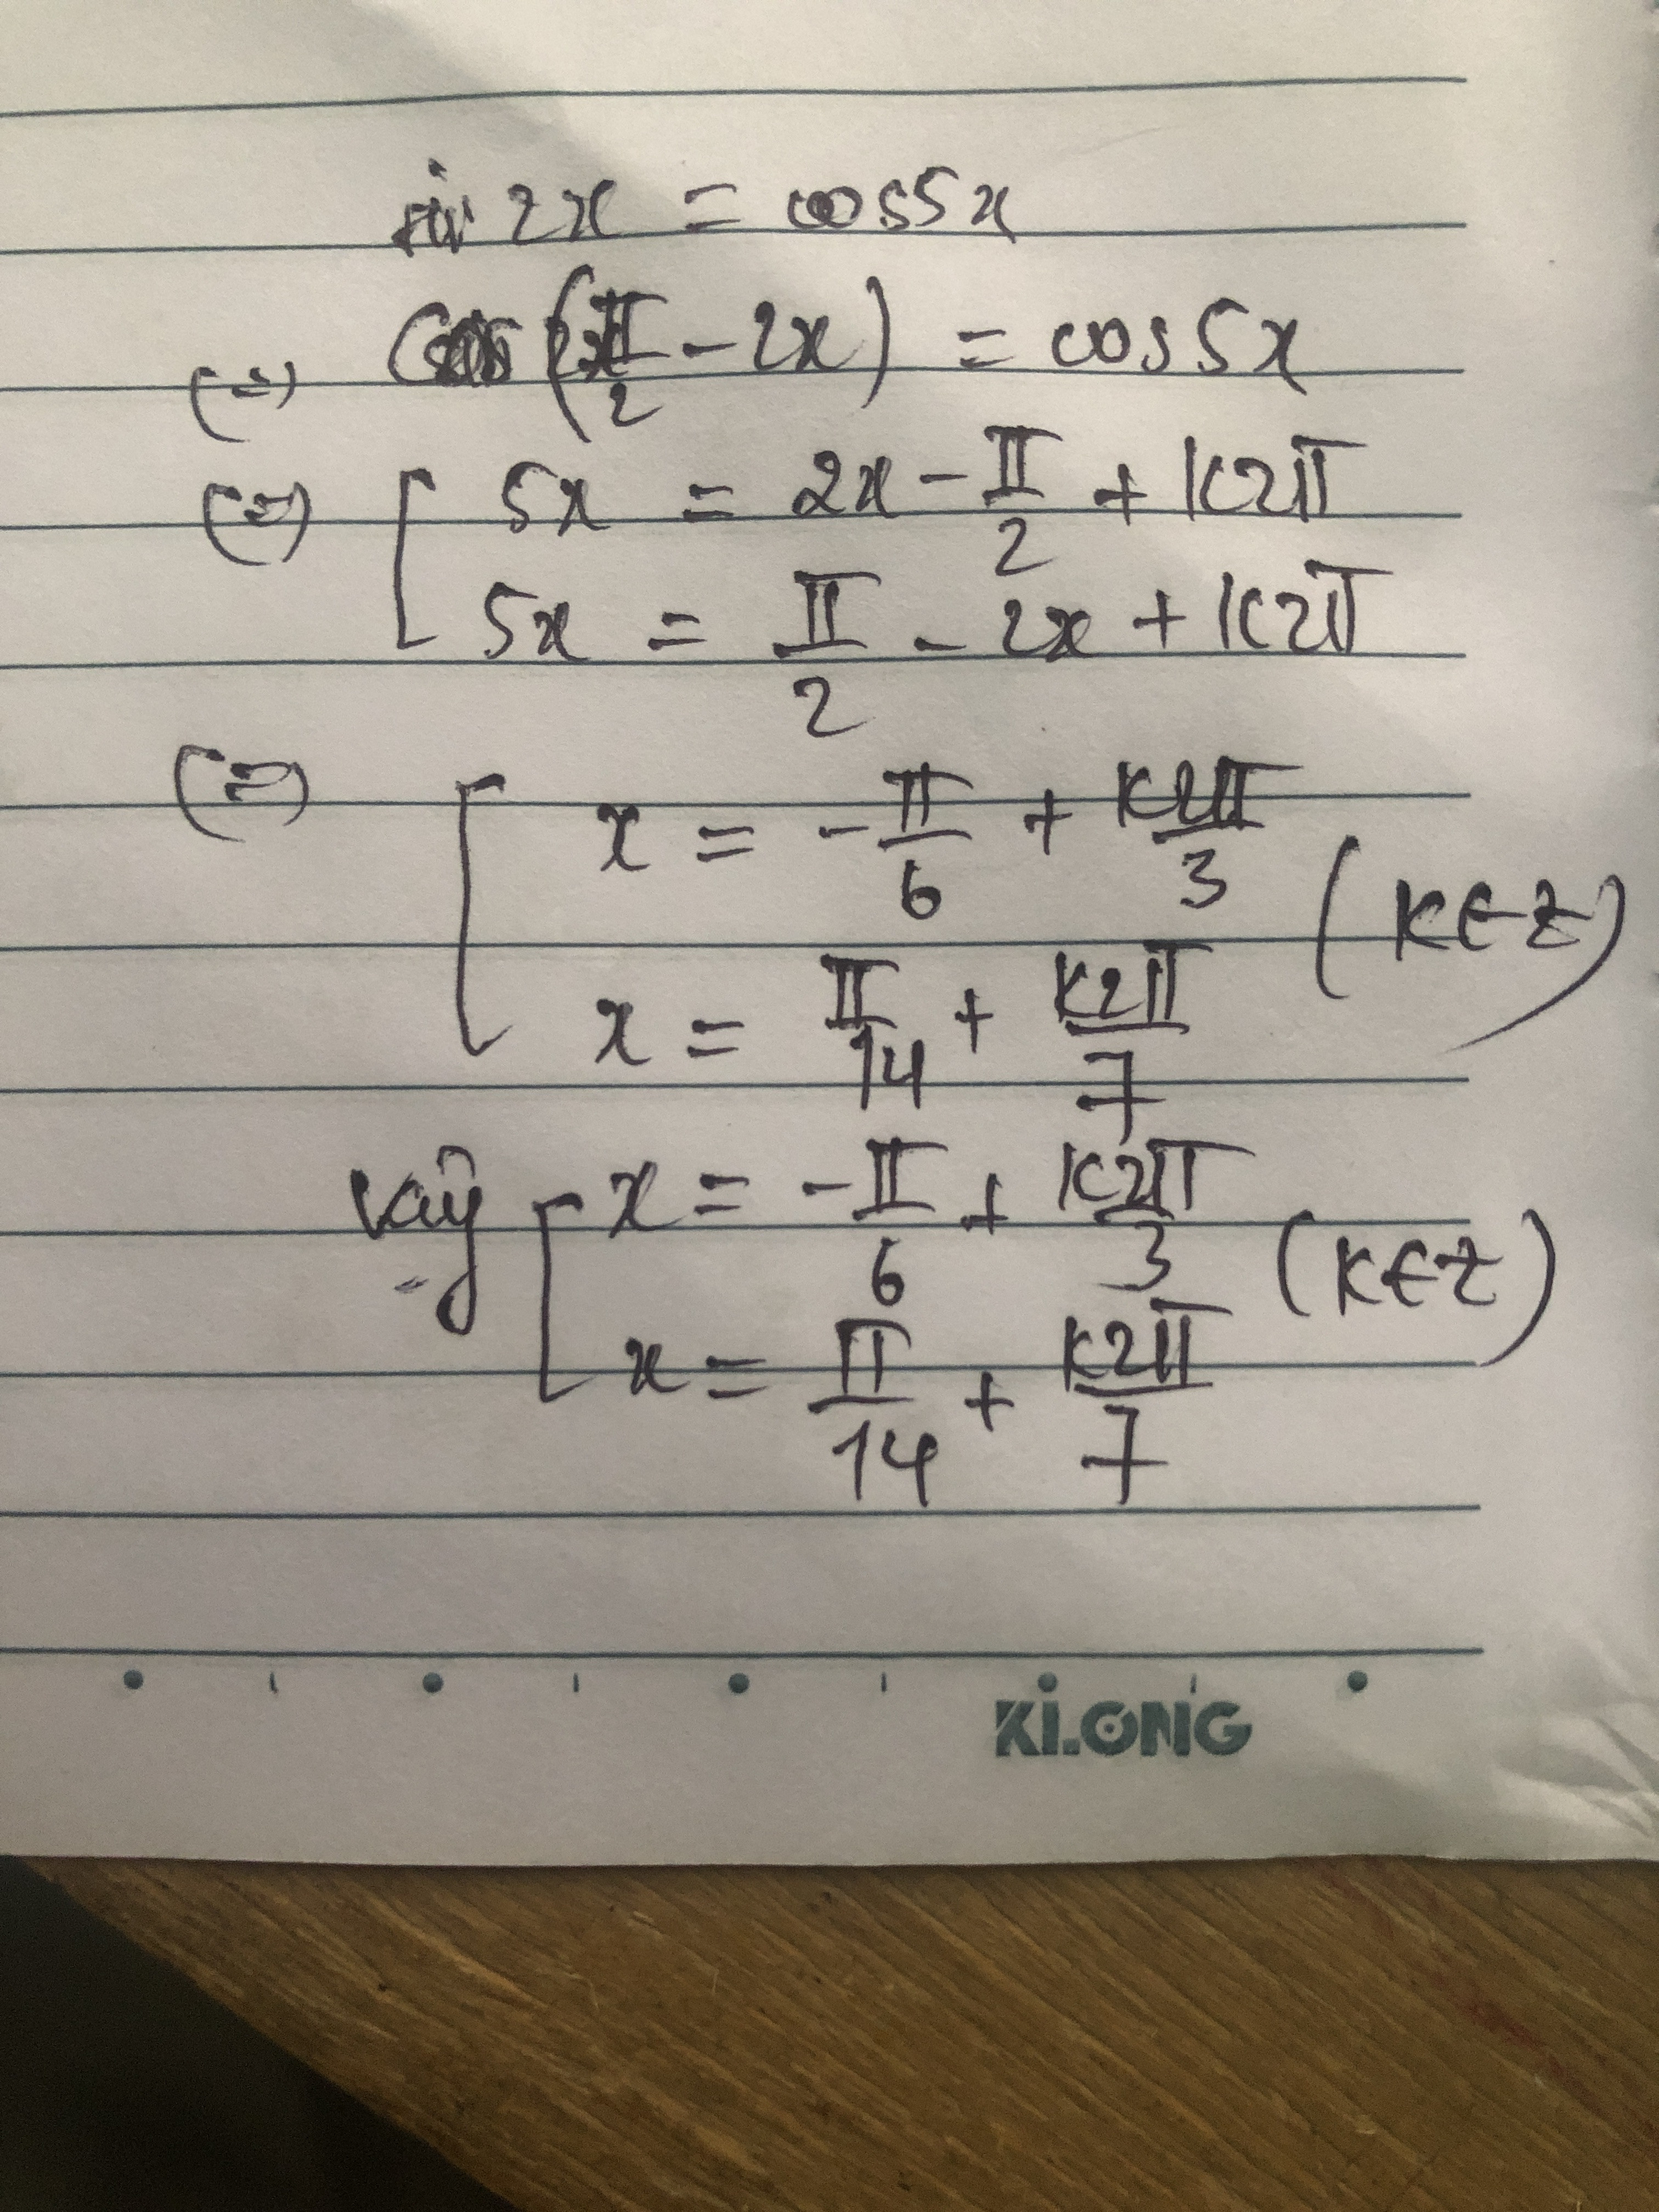 sin 2x = cos5x
(=) cos(π/2 - 2x) = cos5x
(=) [ 5x = 2x - π/2 + k2π
5x = π/2 - 2x + k2π
(=) [ x = -π/6 + k2π/3 (k∈Z)
x = π/14 + k2π/7
vậy [ x = -π/6 + k2π/3 (k∈Z)
x = π/14 + k2π/7
KLONG